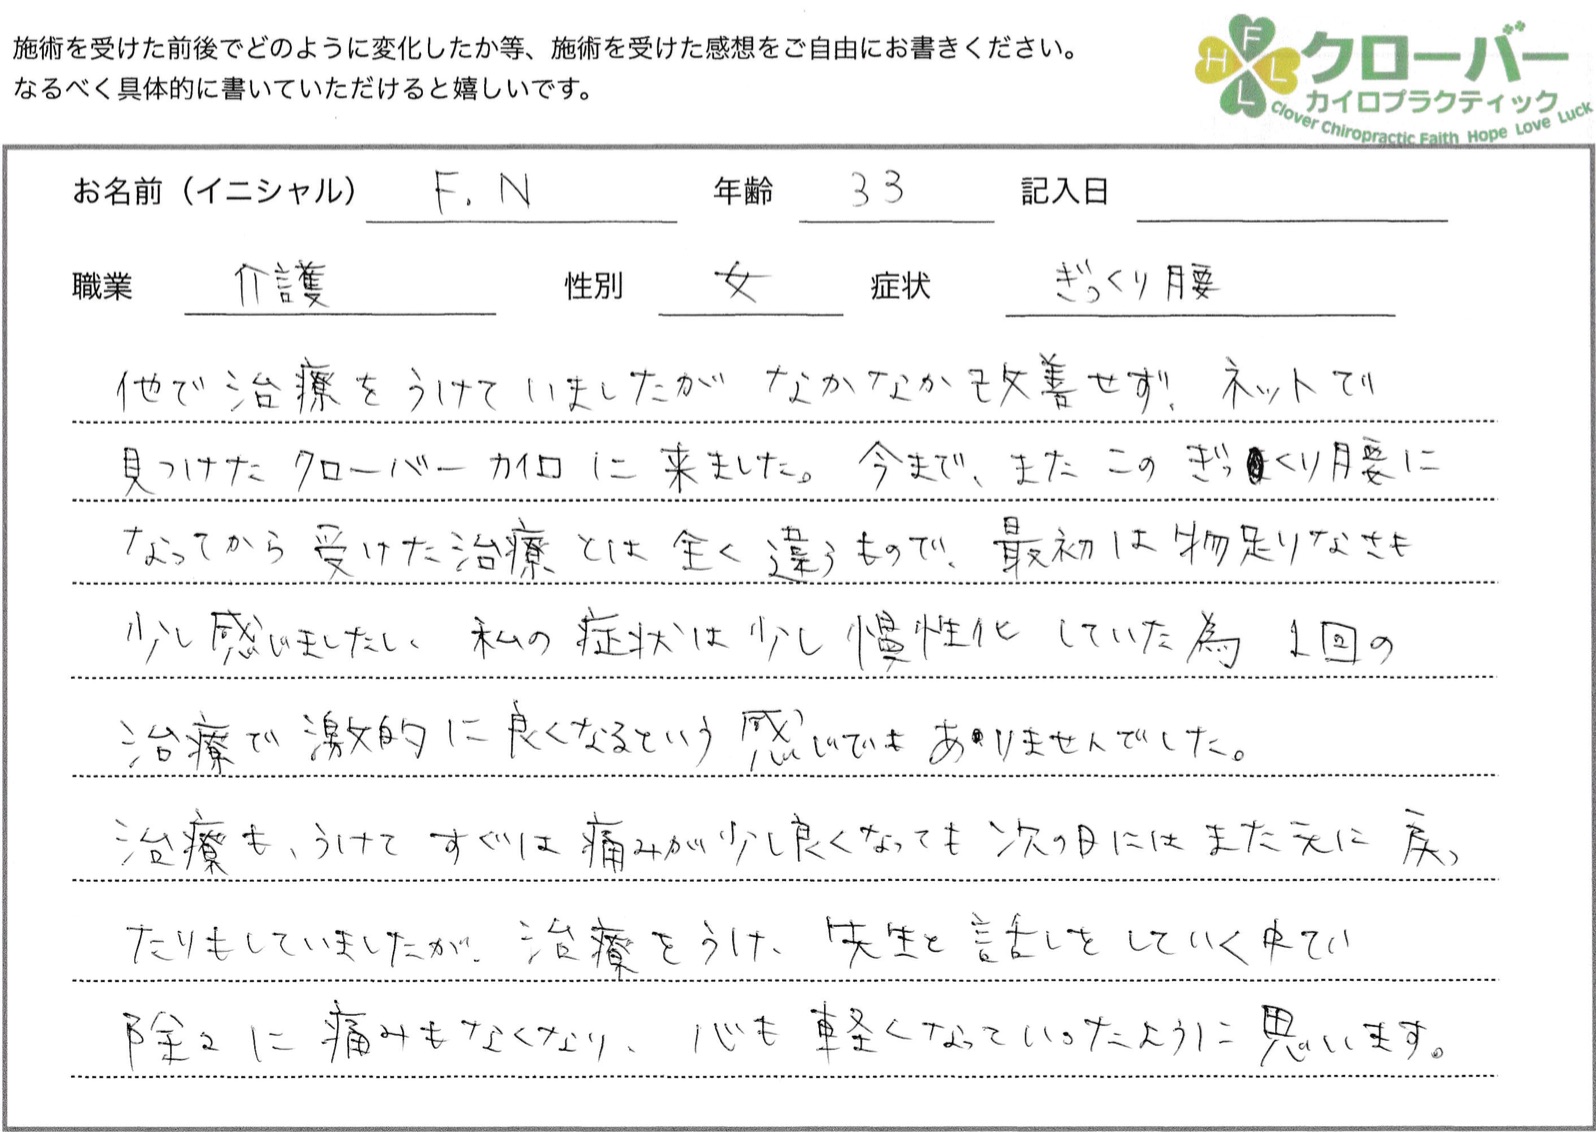 施術を受けた前後でどのように変化したか等、施術を受けた感想をご自由にお書きください。
なるべく具体的に書いていただけると嬉しいです。
H F L L
クローバー
カイロプラクティック
Clover Chiropractic Faith Hope Love Luck
お名前（イニシャル） F.N 年齢 33 記入日
職業 介護 性別 女 症状 ぎっくり腰
他で治療をうけていましたが なかなか改善せず、ネットで
見つけた クローバー カイロ に 来ました。 今まで、また この ぎっくり腰に
なってから 受けた治療 とは 全く 違うもので、最初は物足りなさも
少し感じましたし、私の 症状は少し 慢性化 していた為 1回の
治療で 激的に良くなるという 感じでは ありませんでした。
治療も、うけて すぐは 痛みが少し良くなっても 次の日には また元に 戻っ
たりもしていましたが、治療をうけ、先生と 話しをしていく中で
除々に 痛みもなくなり、心も 軽くなっていったように思います。